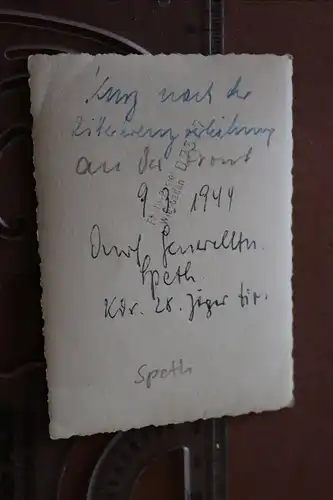 Kurz nach der
Ritterkreuzverleihung
an der Front
9. 1944
Durch Generalltn.
Speth.
Kdr. 28. Jäger Div.
Speth